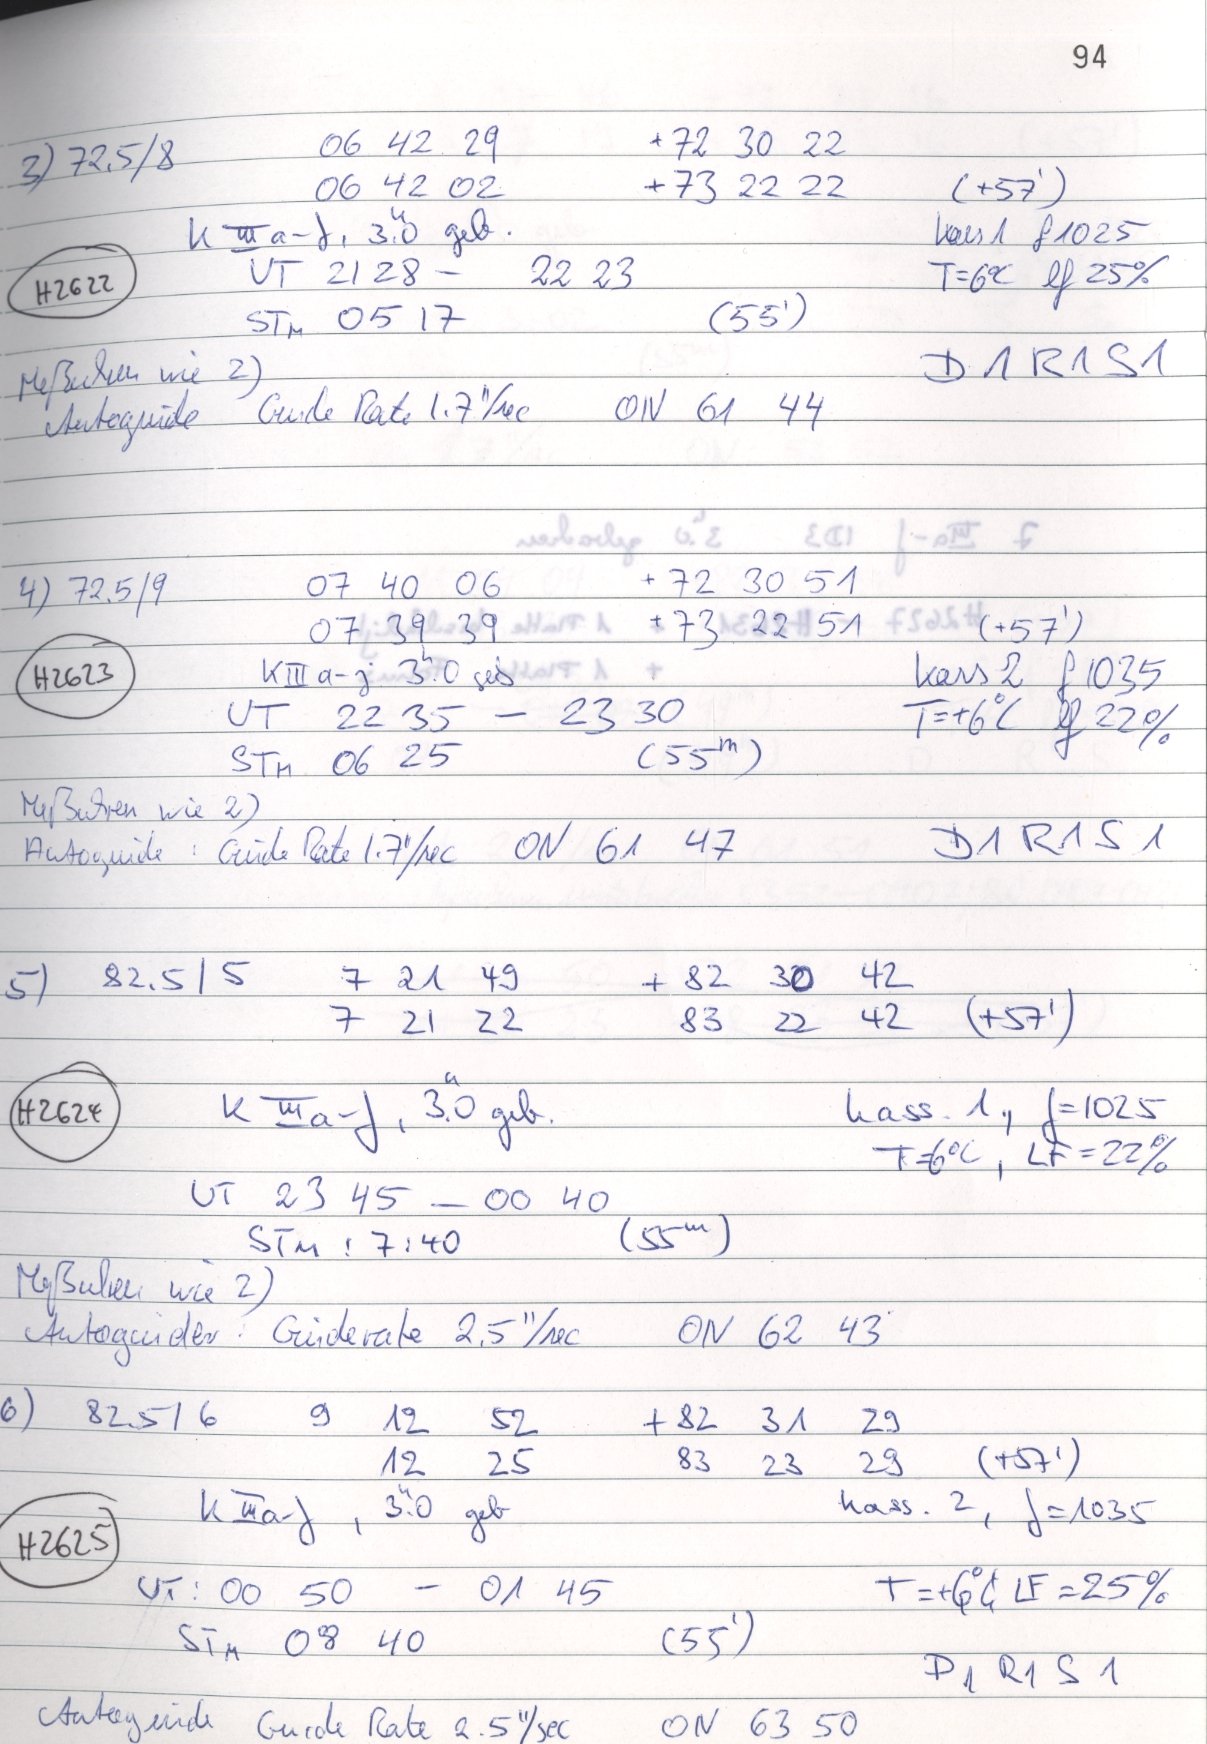 94
3) 72.5/8 06 42 29 +72 30 22
06 42 02 +73 22 22 (+57')
K III a-J, 3.0 geb. Kass 1 f 1025
H2622 UT 21 28 – 22 23 T=6°C lf 25%
STM 05 17 (55')
Meßuhren wie 2) D1 R1 S1
Autoguide Guide Rate 1.7"/sec ON 61 44
4) 72.5/9 07 40 06 +72 30 51
07 39 39 +73 22 51 (+57')
H2623 K III a-J 3.0 geb Kass 2 f 1035
UT 22 35 – 23 30 T=+6°C lf 22%
STM 06 25 (55m)
Meßuhren wie 2)
Autoguide: Guide Rate 1.7"/sec ON 61 47 D1 R1 S1
5) 82.5/5 7 21 49 +82 30 42
7 21 22 83 22 42 (+57')
H2624 K III a-J, 3.0 geb. Kass. 1, f=1025
T=6°C, LF=22%
UT 23 45 – 00 40
STM: 7:40 (55m)
Meßuhren wie 2)
Autoguider: Guiderate 2.5"/sec ON 62 43
6) 82.5/6 9 12 52 +82 31 29
12 25 83 23 29 (+57')
K III a-J, 3.0 geb Kass. 2, f=1035
H2625
UT: 00 50 – 01 45 T=+6°C LF=25%
STM 08 40 (55')
D1 R1 S1
Autoguide Guide Rate 2.5"/sec ON 63 50